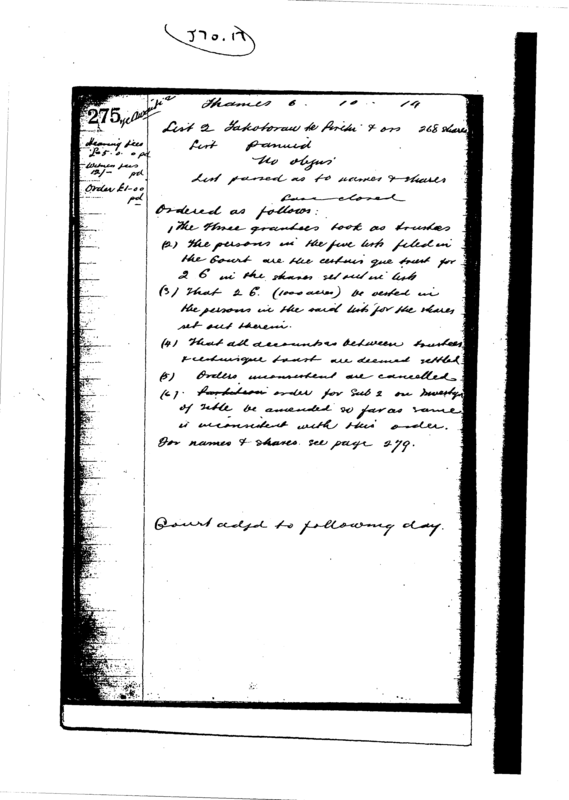 J70.17
275
Thames 6 . 10 . 19
List 2 Te Pirihi & ors 268 shares
Hearing fees
£5.0.0 pd
Witness fees
12/- pd
Order £1-00
pd
List passed
No objns
List passed as to names & shares
Case closed
Ordered as follows:
1, The Three grantees took as trustees
(2) The persons in the five lists filed in
the Court are the certuis que trust for
2 G in the shares set out in lists
(3) That 2 G. (1000 acres) be vested in
the persons in the said lists for the shares
set out therein.
(4) That all accounts between trustees
& cestuique trust are deemed settled
(5) Orders inconsistent are cancelled
(6). Partition order for Sub 2 on Investgn
of title be amended so far as same
is inconsistent with this order.
For names & shares see page 279.
Court adjd to following day.